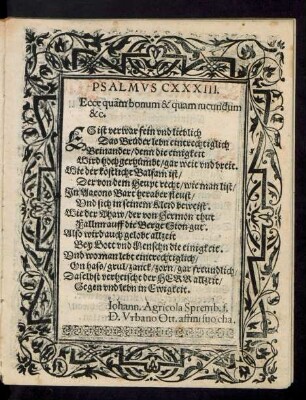 PSALMVS CXXXIII.
Ecce quàm bonum & quam iucundum
&c.
ES ist verwar fein vnd lieblich
Das Brüder lebn eintrechtiglich
Beinander/ denn die einigkeit
Wird hoch gerhümbt/ gar weit vnd breit.
Wie der köstliche Balsam ist/
Der von dem Heupt recht/ wie man list/
In Aarons Bart heraber fleust/
Vnd sich in seinem Kleid beweist.
Wie der Thaw/ der von Hermon thut
Falln/ rauff die Berge Sion gut.
Also wird auch gelobt allzeit
Bey Gott vnd Menschn die einigkeit.
Vnd wo man lebt eintrechtiglich/
On hass/ grul/ zanck/ zorn/ gar freundlich/
Daselbst verheischt der HERR allzeit/
Segen vnd lebn in Ewigkeit.
Iohann. Agricola Spremb. f.
D. Vrbano Ott. affini suo cha.